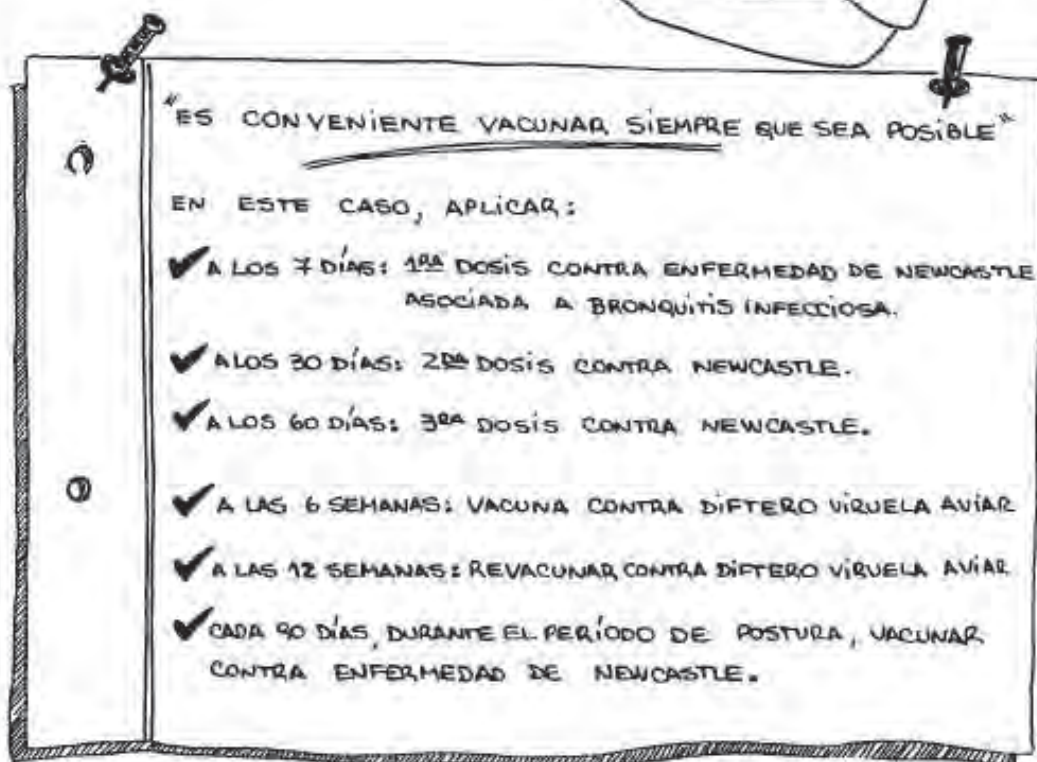 "ES CONVENIENTE VACUNAR SIEMPRE QUE SEA POSIBLE"
EN ESTE CASO, APLICAR:
✔ A LOS 7 DÍAS: 1RA DOSIS CONTRA ENFERMEDAD DE NEWCASTLE
ASOCIADA A BRONQUITIS INFECCIOSA.
✔ A LOS 30 DÍAS: 2DA DOSIS CONTRA NEWCASTLE.
✔ A LOS 60 DÍAS: 3RA DOSIS CONTRA NEWCASTLE.
✔ A LAS 6 SEMANAS: VACUNA CONTRA DIFTERO VIRUELA AVIAR
✔ A LAS 12 SEMANAS: REVACUNAR CONTRA DIFTERO VIRUELA AVIAR
✔ CADA 90 DÍAS, DURANTE EL PERÍODO DE POSTURA, VACUNAR
CONTRA ENFERMEDAD DE NEWCASTLE.